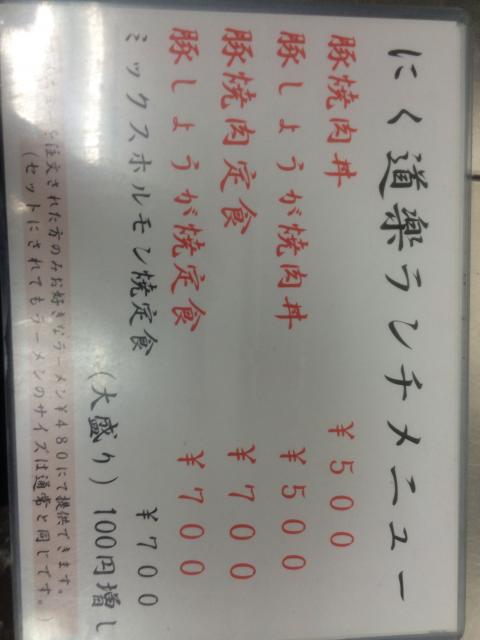 にく道楽ランチメニュー
豚焼肉丼 ¥500
豚しょうが焼肉丼 ¥500
豚焼肉定食 ¥700
豚しょうが焼定食 ¥700
ミックスホルモン焼定食 ¥700
(大盛り)100円増し
注文された方のみお好きなラーメン¥480にて提供できます。
(セットにされてもラーメンのサイズは通常と同じです。)